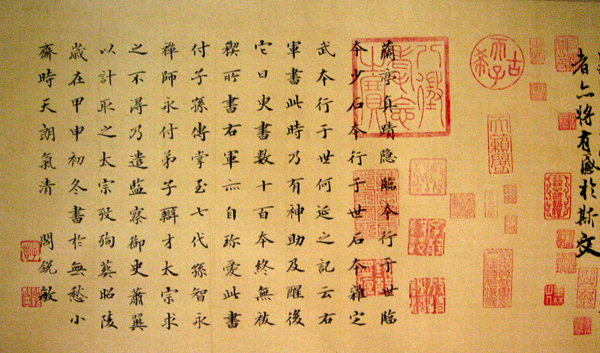 者亦将有感於斯文
古希天子
八徵耄念之寶
蘭亭真蹟隱臨本行于世臨
本少石本行于世石本雜定
武本行于世何延之記云右
軍書此時乃有神助及醒後
它日更書數十百本終無祓
禊所書右軍亦自珍愛此書
付子孫傳掌至七代孫智永
禪師永付弟子辯才太宗求
之不得乃遣監察御史蕭翼
以計取之太宗歿殉葬昭陵
歲在甲申初冬書於無愁小
齋時天朗氣清 閻銳敏